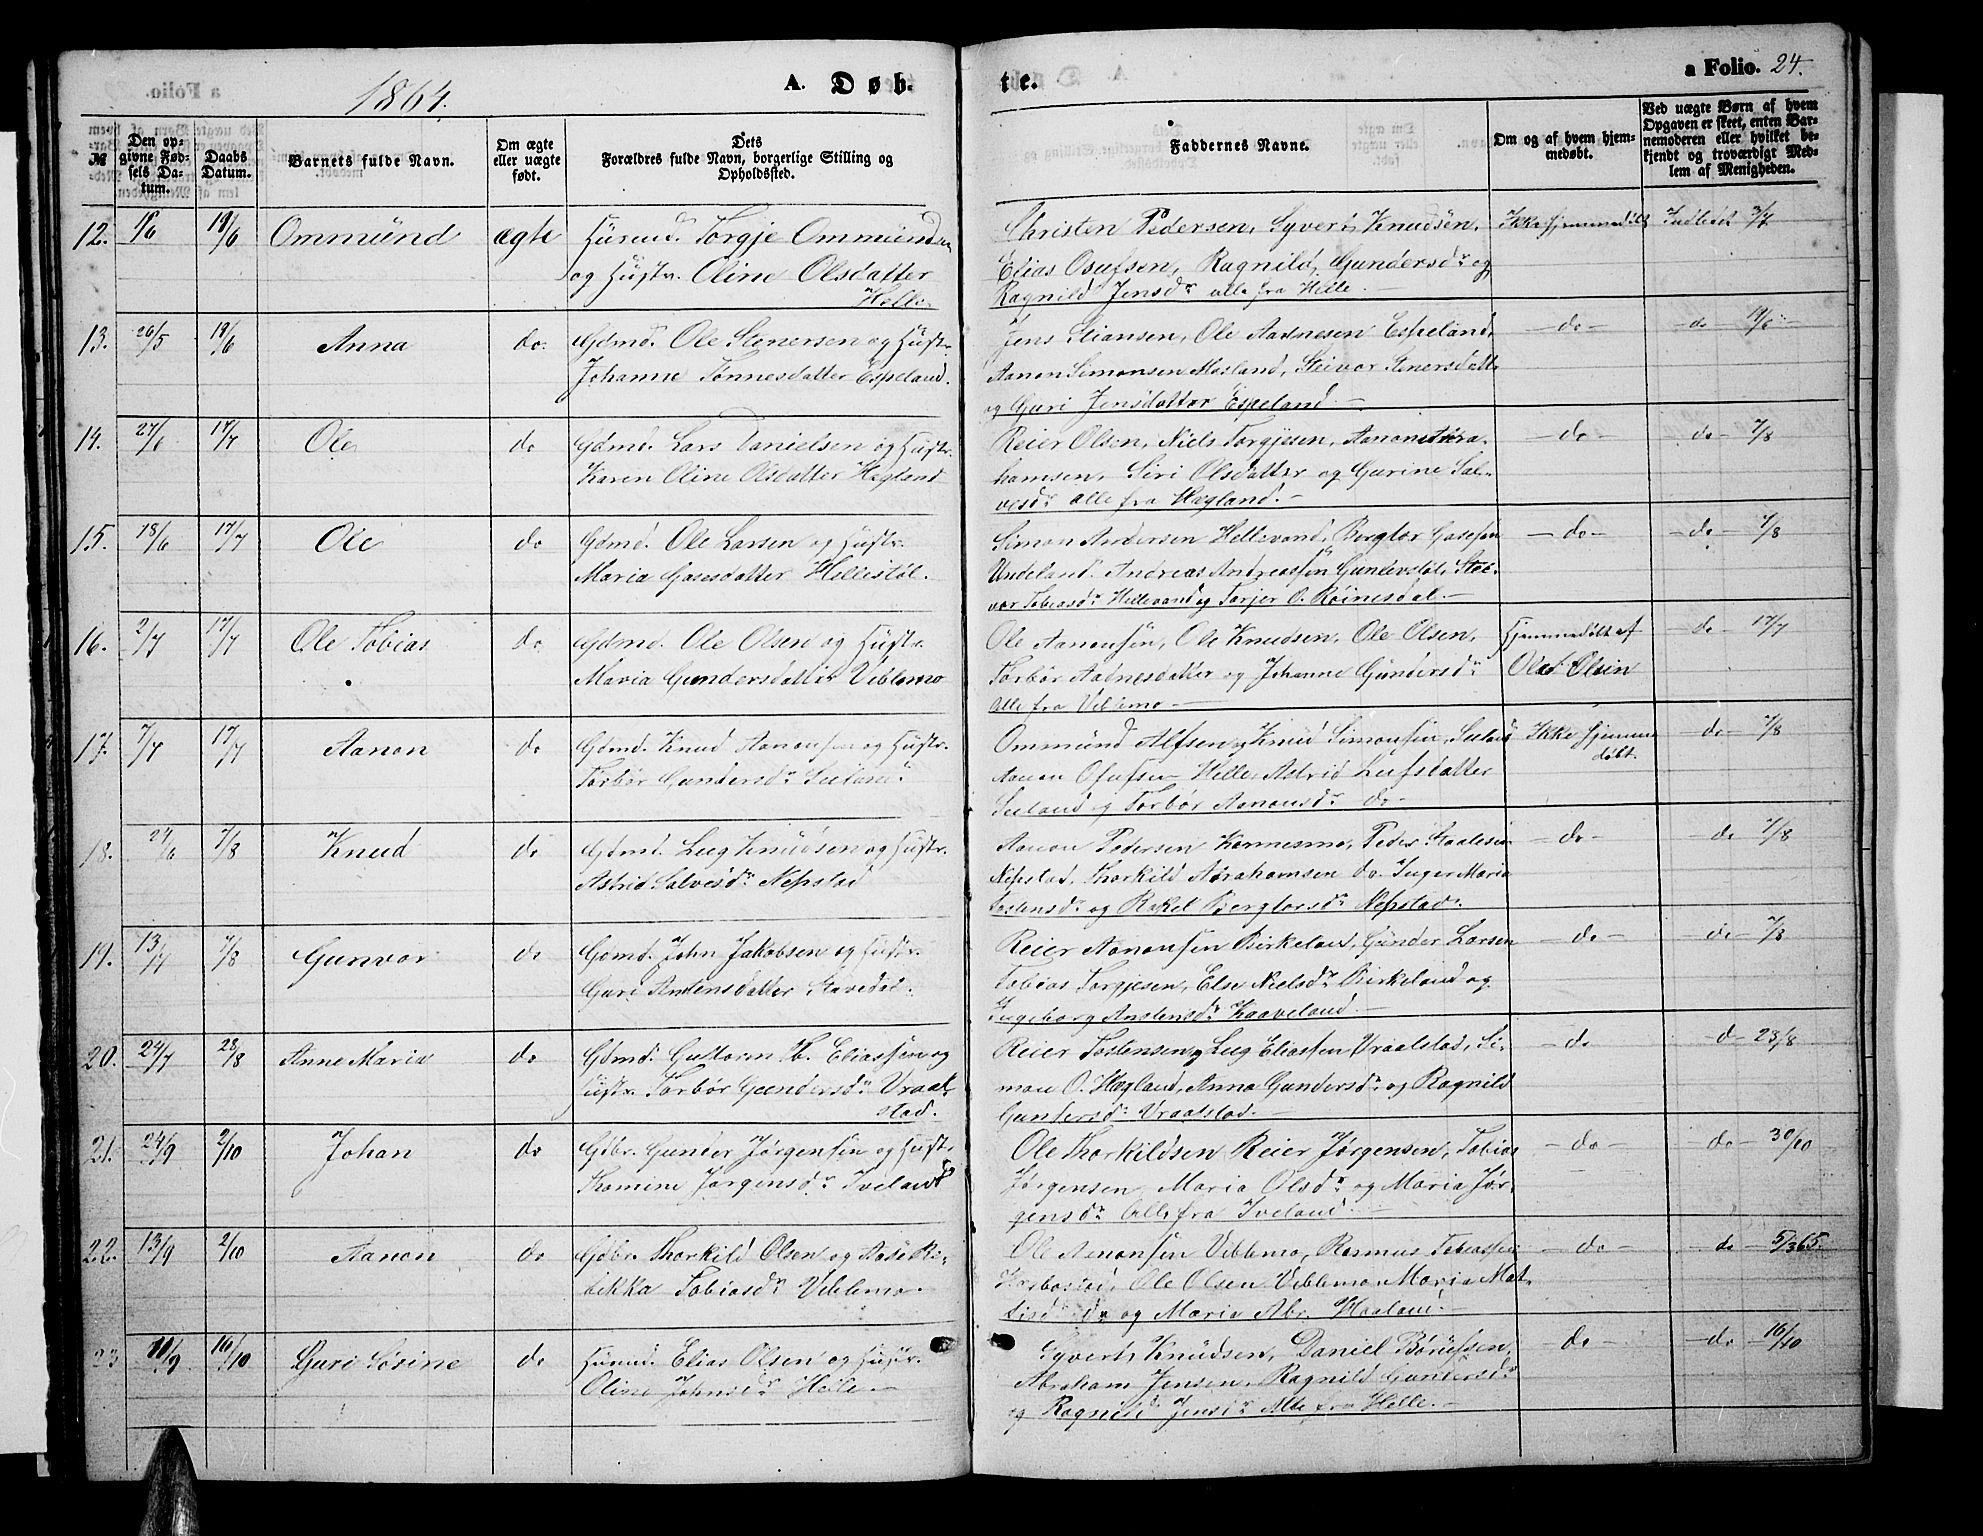 1864. A. Døb. te. a Folio. 24.
№ Den opgivne Fødsels Datum. Daabs Datum. Barnets fulde Navn. Om ægte eller uægte født. Dets Forældres fulde Navn, borgerlige Stilling og Opholdssted. Faddernes Navne. Om og af hvem hjemmedøbt. Ved uægte Børn af hvem Opgaven er skeet, enten Barnemoderen eller hvilket bekjendt og troværdigt Medlem af Menigheden.
12. 1/6 19/6 Ommünd ægte Huusmd. Torgje Ommünds Christen Pedersen, Syvert Knudsen, Ikke hjemmedøbt Indledt 3/7
og Hustr. Oline Olsdatter Elias Osufsen, Ragnild Gundersdr og
Helle. Ragnild Jensdr alle fra Helle. –
13. 26/5 19/6 Anna do. Gdmd. Ole Stenersen og Hustr. Jens Stiansen, Ole Aadnesen Espeland, – do – – do 19/6 –
Johanne Tønnesdatter Espeland. Aanon Simonsen Mosland, Steivor Stenersdatt.
og Guri Jensdatter Espeland. –
14. 27/6 17/7 Ole do Gdmd. Lars Danielsen og Hustr. Reier Olsen, Niels Torgjesen, Aanon Abra- – do – – do – 7/8
Karen Oline Olsdatter Hægland hamsen, Siri Olsdatter og Gurine Sal-
vesdr alle fra Hægland. –
15. 18/6 17/7 Ole do Gdmd. Ole Larsen og Hustr. Simon Andersen Hellevand, Bergtor Gasesen – do – – do – 7/8
Maria Gasesdatter Hellestöl. Undeland. Andreas Andreassen Gunlevstøl, Stei-
vor Tobiasdr Hellevand og Torjer O. Röinesdal. –
16. 2/7 17/7 Ole Tobias do Gdmd. Ole Olsen og Hustr. Ole Aanonsen, Ole Knudsen, Ole Olsen, Hjemmedøbt af – do – 17/7
Maria Gundersdatter Viblemo Torbör Aadnesdatter og Johanne Gundersdr Olaf Olsen
alle fra Viblemo –
17. 7/7 17/7 Aanon do Gdmd. Knud Aanonsen og Hustr. Ommünd Alfsen, Knud Simonsen, Seeland Ikke hjemme- do – 7/8
Torbör Gundersdr Seeland Aanon Osufsen Helle, Astrid Leifsdatter døbt.
Seeland og Torbör Aanonsdr do –
18. 24/6 7/8 Knud do Gdmd. Leeg Knudsen og Hustr. Aanon Pedersen Konnesmo, Peder Staalesen – do – do – 7/8
Astrid Salvesdr Nepstad Nepstad, Thorkild Abrahamsen do. Inger Maria
Tostensdr og Rakel Bergtorsdr Nepstad.
19. 13/7 7/8 Gunvor do Gdmd. John Jakobsen og Hustr. Reier Aanonsen Birkeland, Gunder Larsen – do – do – 7/8
Guri Anstensdatter Stavedal. Tobias Torgjesen, Else Nielsdr Birkeland og
Ingeborg Anstensdr Kaaveland. –
20. 24/7 28/8 Anne Maria do Gdmd. Guttorm Th. Eliassen og Reier Tostensen, Leeg Eliassen Vraalstad, Si- – do d – 28/8
Hustr. Torbör Gundersdr Vraal- mon O. Hægland, Anna Gundersdr og Ragnild
stad. Gundersdr Vraalstad. –
21. 24/9 2/10 Johan do Gdbr. Gunder Jørgensen og Hustr. Ole Thorkildsen Reier Jørgensen, Tobias – do – do – 30/10
Jørgensdr Iveland Jørgensen, Maria Olsdr og Maria Jør-
gensdr alle fra Iveland.
22. 13/9 2/10 Aanon do Gdbr. Thorkild Olsen og Aase Re- Ole Aanonsen Viblemo, Rasmus Tobiassen – do – do – 5/3 65.
bikka Tobiasdr Viblemo. Ole Olsen Viblemo, Maria Mat-
do og Maria Abr. Haaland.
23 10/9 16/10 Guri Sösine do Huusmd. Elias Olsen og Hustr. Syvert Knudsen, Daniel Börufsen, – do – do – 16/10
Oline Johnsdr Helle – Abraham Jensen, Ragnild Gundersdr
og Ragnild Jensdr Alle fra Helle. –